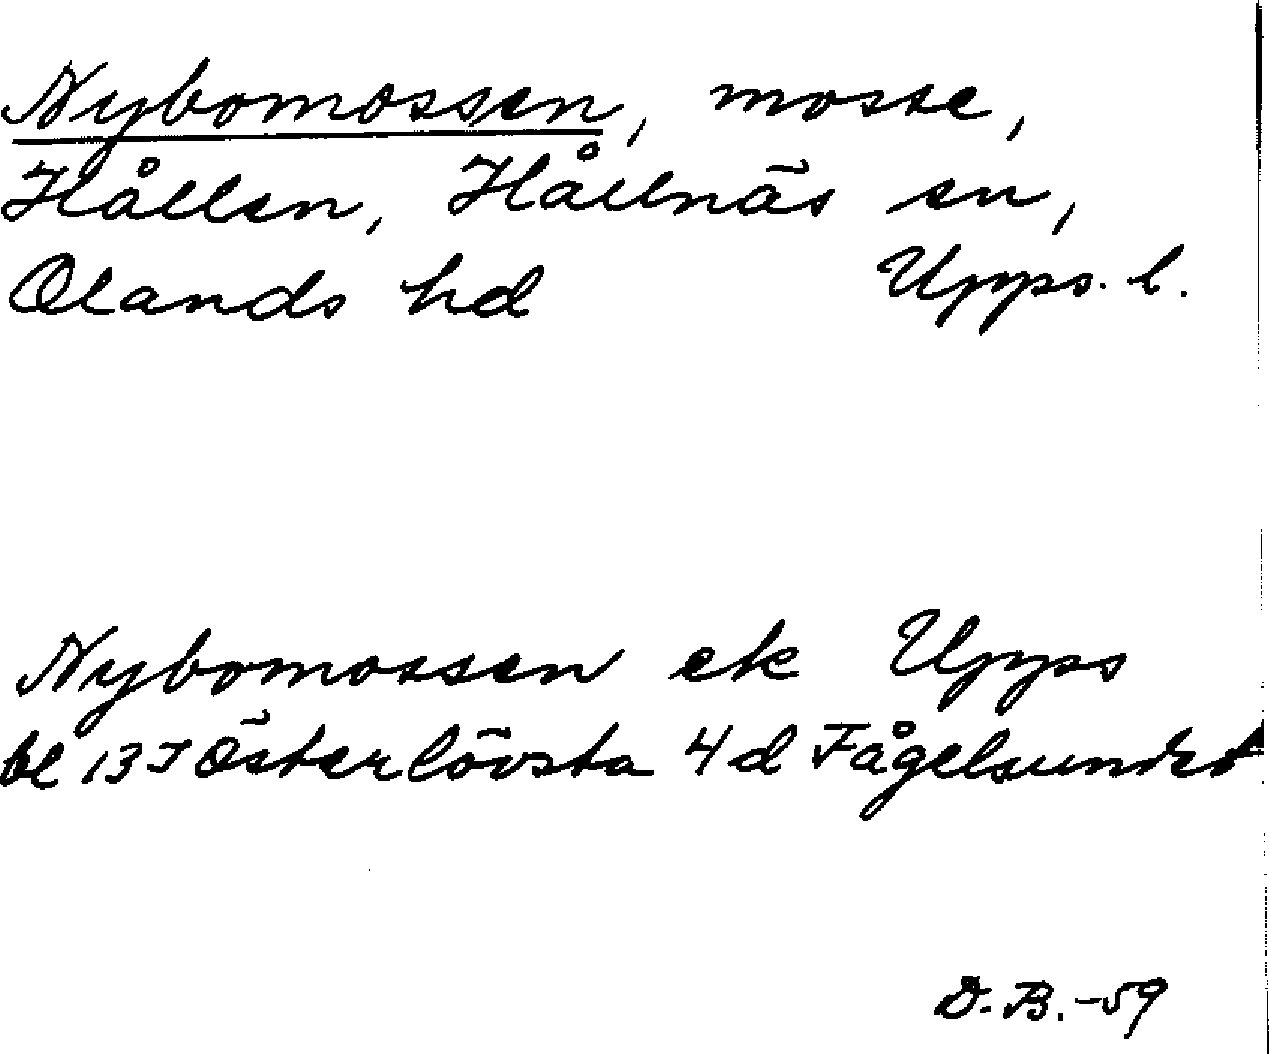 Nybomossen, mosse,
Hållen, Hållnäs sn,
Olands hd Upps. l.
Nybomossen ek Upps
bl 13 I Österlövsta 4 d Fågelsundet
D.B.-59